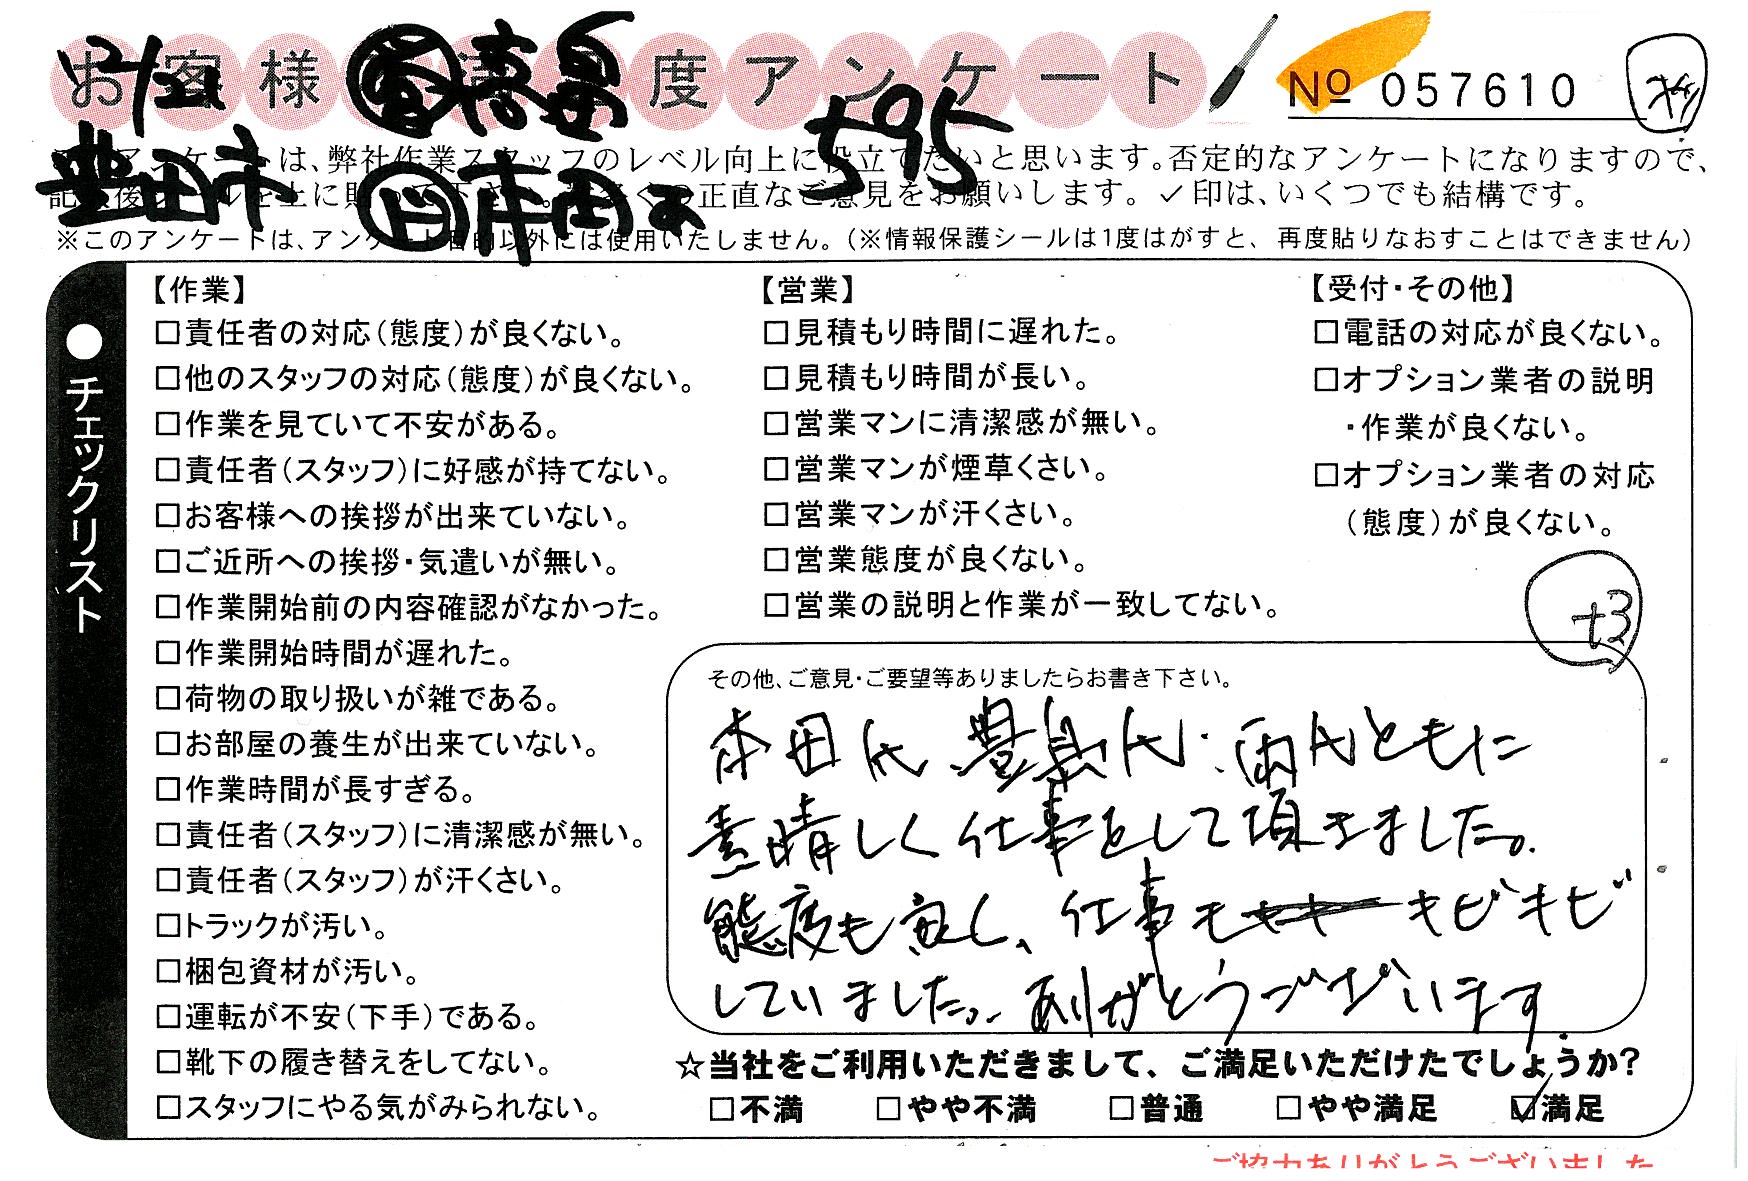 お客様 度アンケート
№ 057610
豊田市 本田 595
は、弊社作業スタッフのレベル向上に役立てたいと思います。否定的なアンケートになりますので、
正直なご意見をお願いします。✓印は、いくつでも結構です。
※このアンケートは、アンケート目的以外には使用いたしません。(※情報保護シールは1度はがすと、再度貼りなおすことはできません)
●チェックリスト
【作業】
□責任者の対応(態度)が良くない。
□他のスタッフの対応(態度)が良くない。
□作業を見ていて不安がある。
□責任者(スタッフ)に好感が持てない。
□お客様への挨拶が出来ていない。
□ご近所への挨拶・気遣いが無い。
□作業開始前の内容確認がなかった。
□作業開始時間が遅れた。
□荷物の取り扱いが雑である。
□お部屋の養生が出来ていない。
□作業時間が長すぎる。
□責任者(スタッフ)に清潔感が無い。
□責任者(スタッフ)が汗くさい。
□トラックが汚い。
□梱包資材が汚い。
□運転が不安(下手)である。
□靴下の履き替えをしてない。
□スタッフにやる気がみられない。
【営業】
□見積もり時間に遅れた。
□見積もり時間が長い。
□営業マンに清潔感が無い。
□営業マンが煙草くさい。
□営業マンが汗くさい。
□営業態度が良くない。
□営業の説明と作業が一致してない。
【受付・その他】
□電話の対応が良くない。
□オプション業者の説明
・作業が良くない。
□オプション業者の対応
(態度)が良くない。
+3
その他、ご意見・ご要望等ありましたらお書き下さい。
本田氏 豊島氏、両氏ともに
素晴しく仕事をして頂きました。
態度も宜しく、仕事も キビキビ
していました。ありがとうございます。
☆当社をご利用いただきまして、ご満足いただけたでしょうか?
□不満 □やや不満 □普通 □やや満足 ☑満足
ご協力ありがとうございました